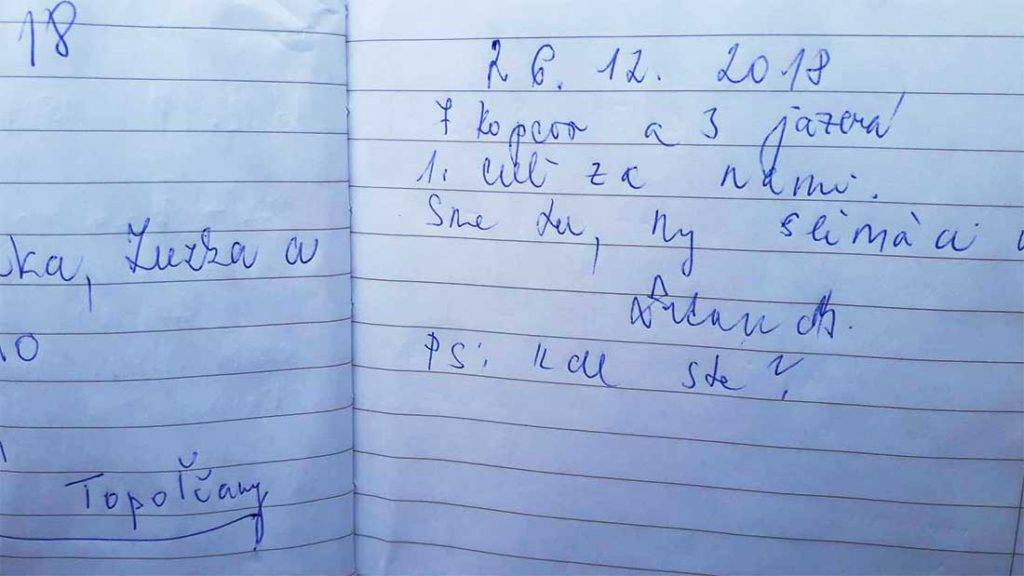 18
ka, Zuzka a
10
Topoľčany
26. 12. 2018
7 kopcov a 3 jazerá
1. cieľ za nami.
Sme tu, my slimáci
PS: kde ste?